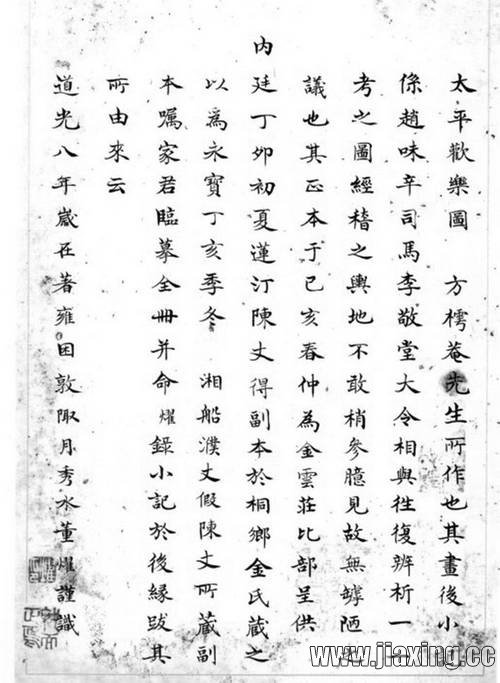 太平歡樂圖　方樗菴先生所作也其畫後小
係趙味辛司馬李敬堂大令相與往復辨析一
考之圖經稽之輿地不敢稍參臆見故無罅陋
議也其正本于己亥春仲為金雲莊比部呈供
内廷丁卯初夏蓮汀陳丈得副本於桐鄉金氏藏之
以爲永寶丁亥季冬　湘船濮丈假陳丈所藏副
本囑家君臨摹全冊并命燿錄小記於後緣跋其
所由來云
道光八年嵗在著雍困敦陬月秀水董燿謹識
www.jiaxing.cc